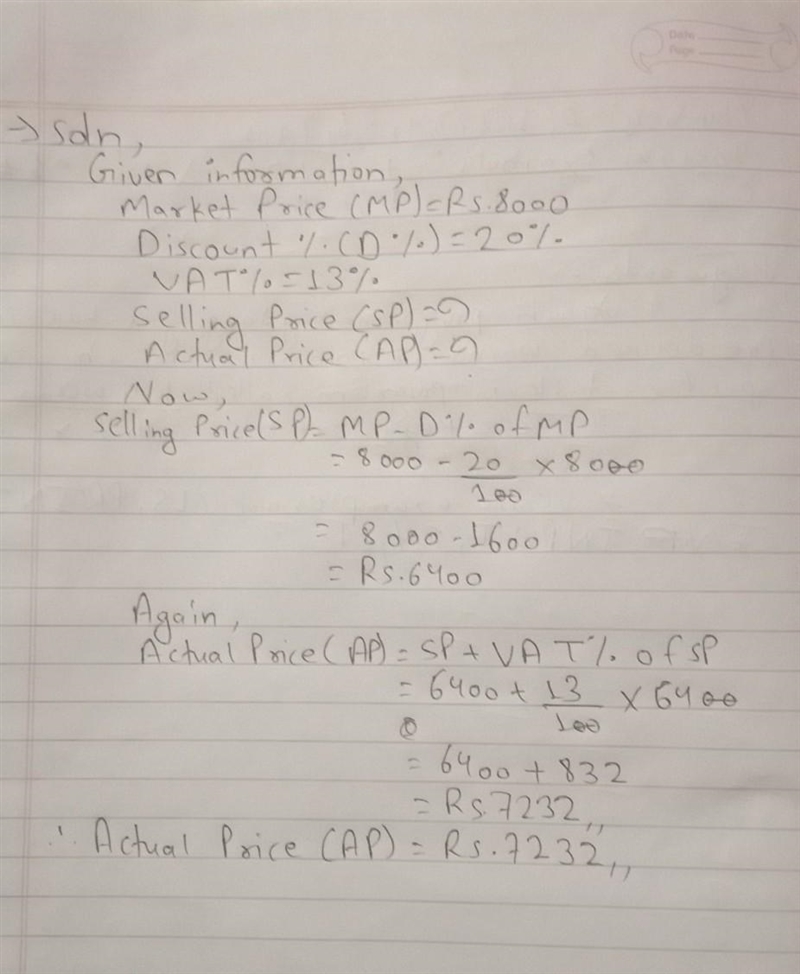 Date
Page
→ Soln,
Given information,
Market Price (MP)=Rs.8000
Discount %(D%)=20%.
VAT%=13%
Selling Price (SP)=?
Actual Price (AP)=?
Now,
Selling Price(SP)= MP-D% of MP
=8000-20/100 ×8000
= 8000-1600
=Rs.6400
Again,
Actual Price(AP)=SP+VAT% of SP
=6400+13/100 ×6400
=6400+832
=Rs.7232,,
∴ Actual Price (AP)=Rs.7232,,